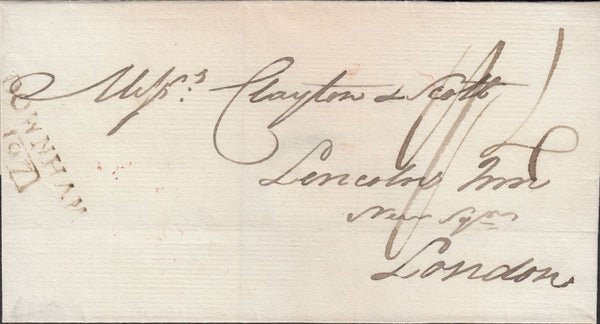 Mess.rs Clayton & Scott
Lincolns Inn
New Sqre
London
DOWNHAM